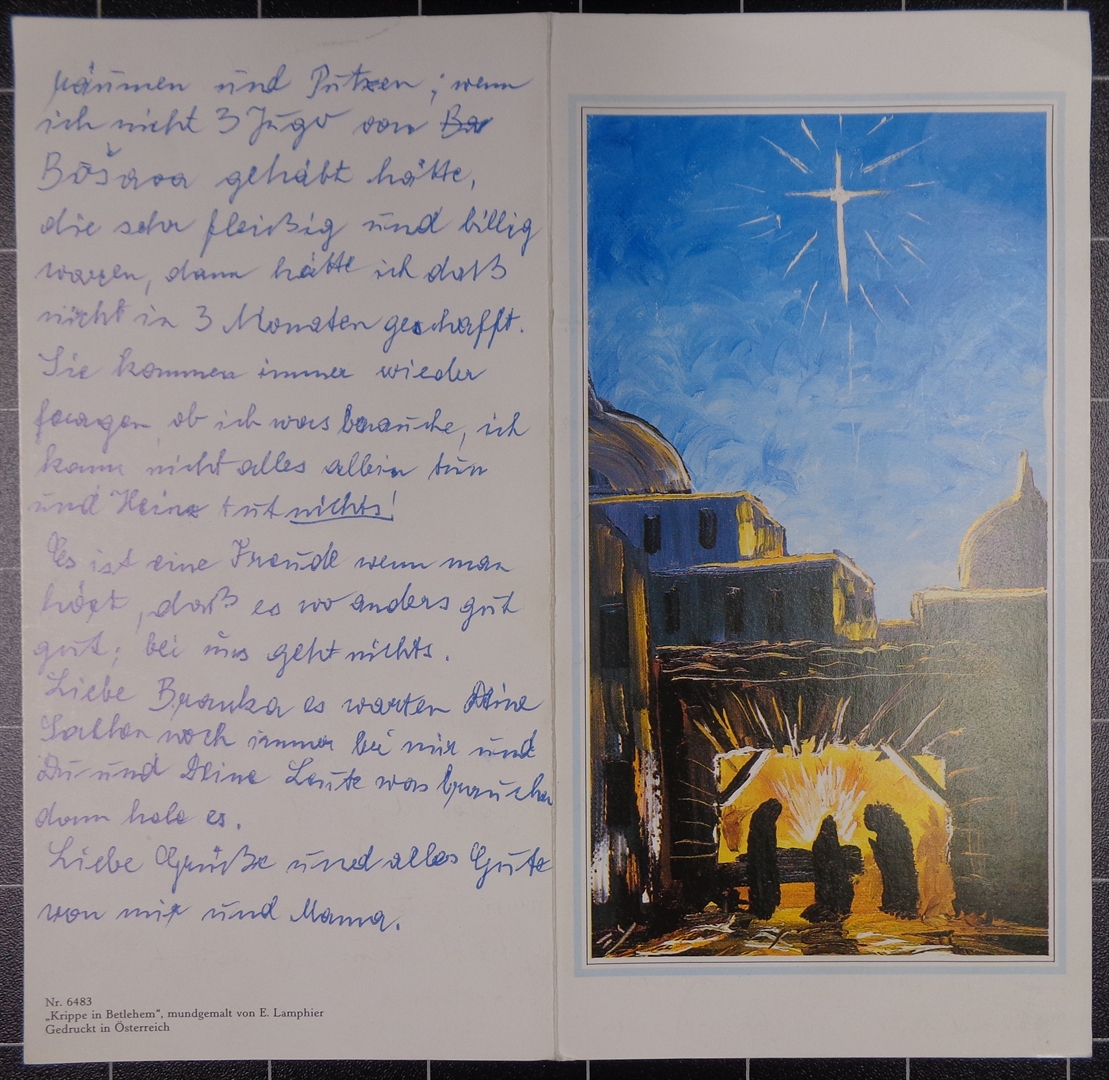 räumen und Putzen; wenn
ich nicht 3 Jugo von Ba
Bošava gehabt hätte,
die sehr fleißig und billig
waren, dann hätte ich daß
nicht in 3 Monaten geschafft.
Sie kommen immer wieder
fragen, ob ich was brauche, ich
kann nicht alles allein tun
und Heinz tut nichts!
Es ist eine Freude wenn man
hört, daß es wo anders gut
gut; bei uns geht nichts.
Liebe Branka es warten Deine
Sachen noch immer bei mir und
Du und Deine Leute was brauchen
dann hole es.
Liebe Grüße und alles Gute
von mir und Mama.
Nr. 6483
„Krippe in Betlehem“, mundgemalt von E. Lamphier
Gedruckt in Österreich